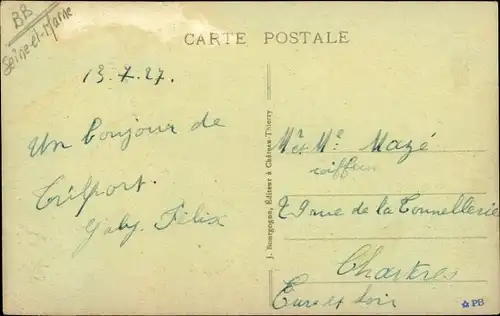 BB
Seine-et-Marne
CARTE POSTALE
13.7.27.
Un bonjour de
Trilport.
Gaby. Félix
J. Bourgogne, Éditeur à Château-Thierry
Mr et Me Mazé
coiffeur
29 rue de la Tonnellerie
Chartres
Eure et Loir
PB